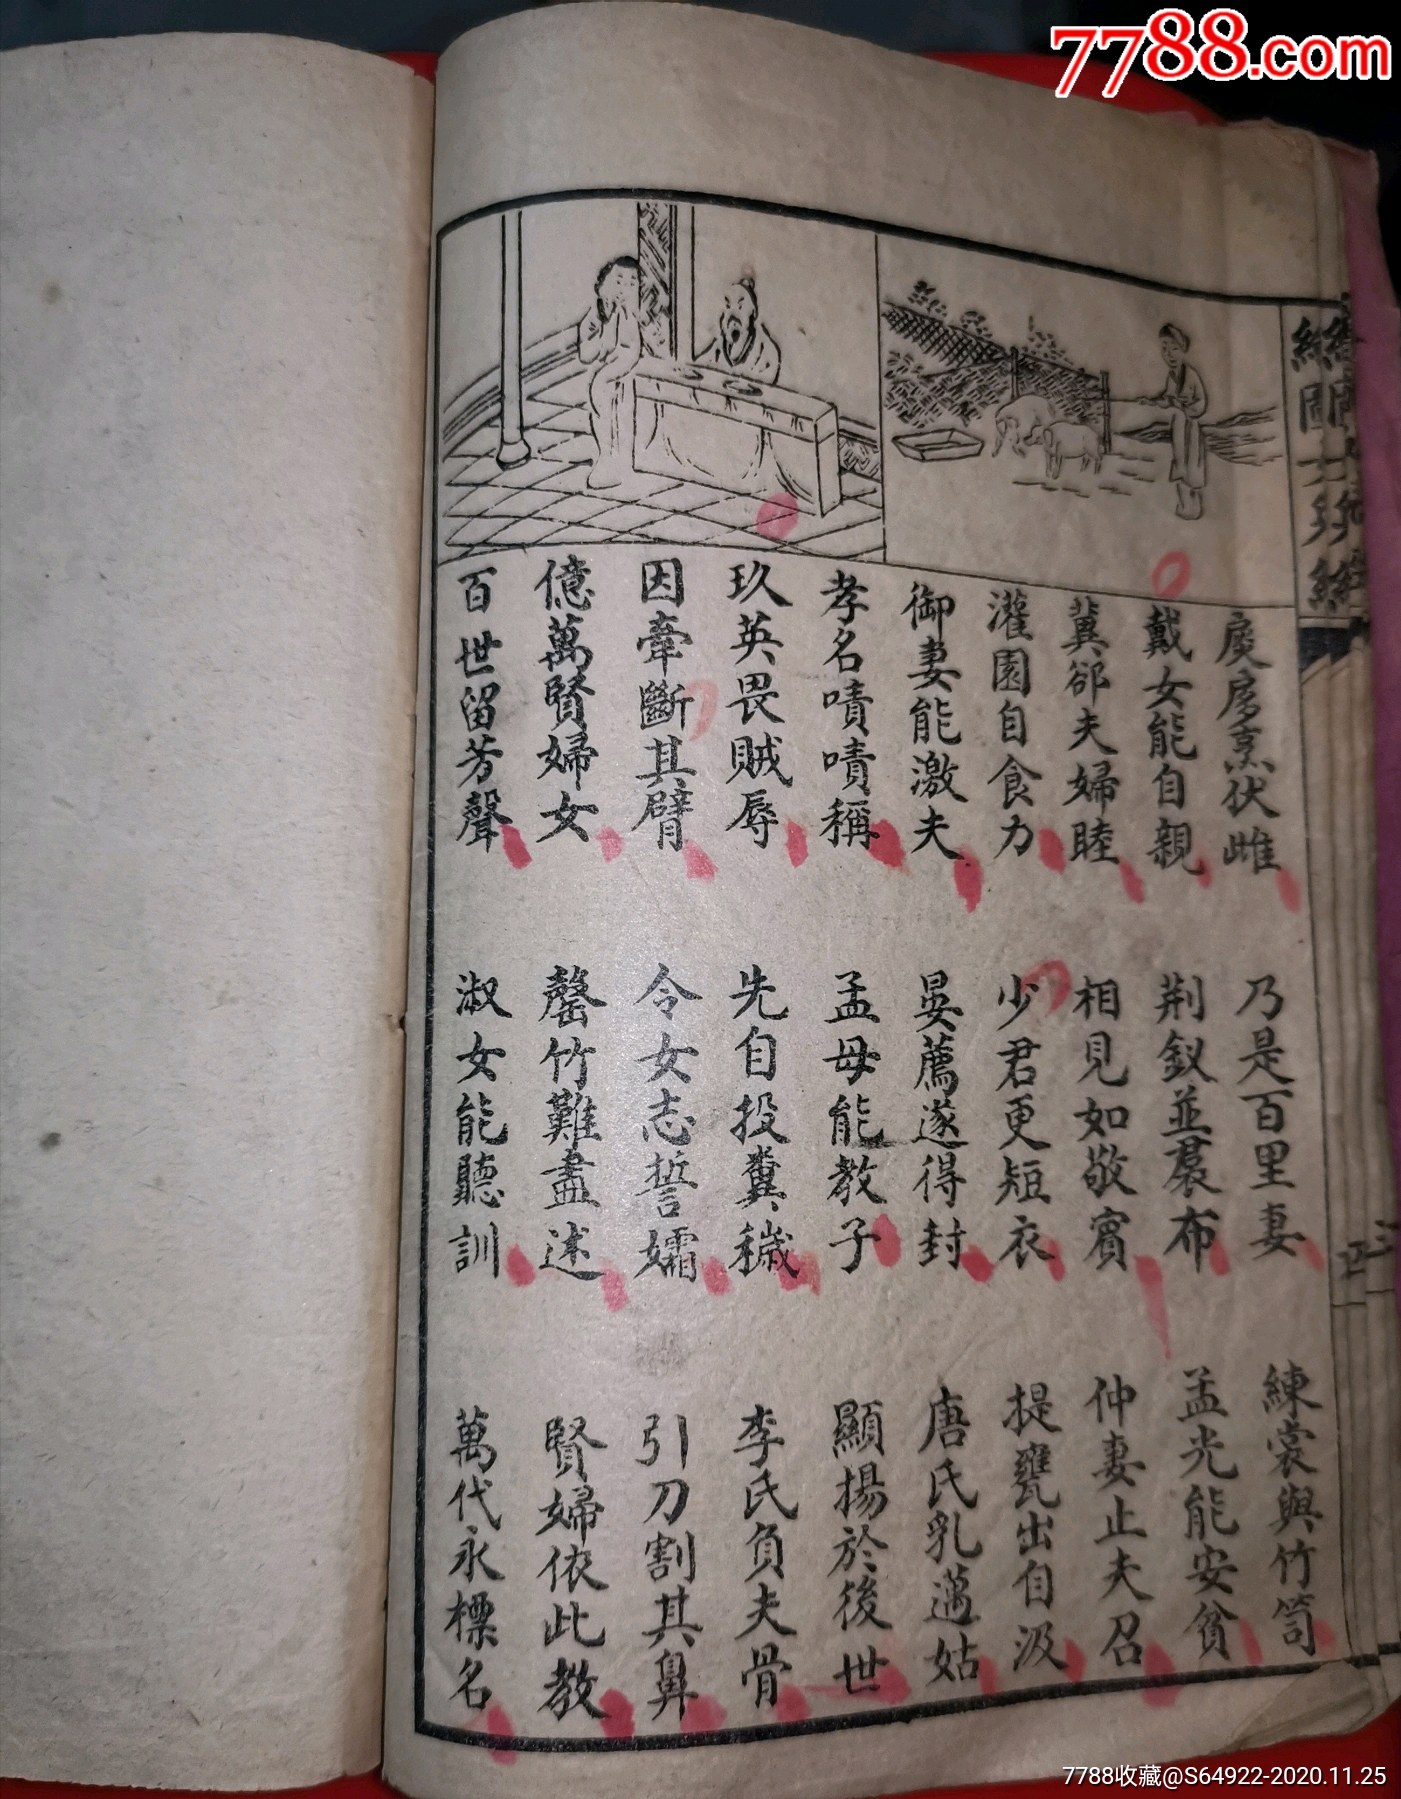 7788.com
扊扅烹伏雌 乃是百里妻 練裳與竹笥
戴女能自親 荆釵並裠布 孟光能安貧
冀郤夫婦睦 相見如敬賓 仲妻止夫召
灌園自食力 少君更短衣 提甕出自汲
御妻能激夫 晏薦遂得封 唐氏乳邁姑
孝名嘖嘖稱 孟母能教子 顯揚於後世
玖英畏賊辱 先自投糞穢 李氏負夫骨
因牽斷其臂 令女志誓孀 引刀割其鼻
億萬賢婦女 罄竹難盡述 賢婦依此教
百世留芳聲 淑女能聽訓 萬代永標名
7788收藏@S64922-2020.11.25